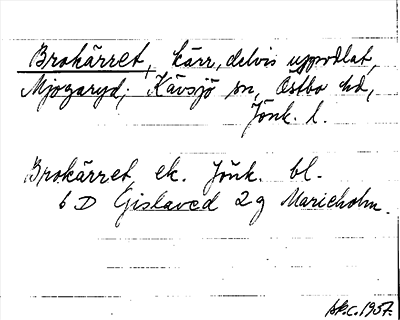 Brokärret, kärr, delvis uppodlat,
Mjogaryd, Kävsjö sn, Östbo hd,
Jönk. l.
Brokärret ek. Jönk. bl.
6 D Gislaved 2 g Marieholm.
sk.c.1957.